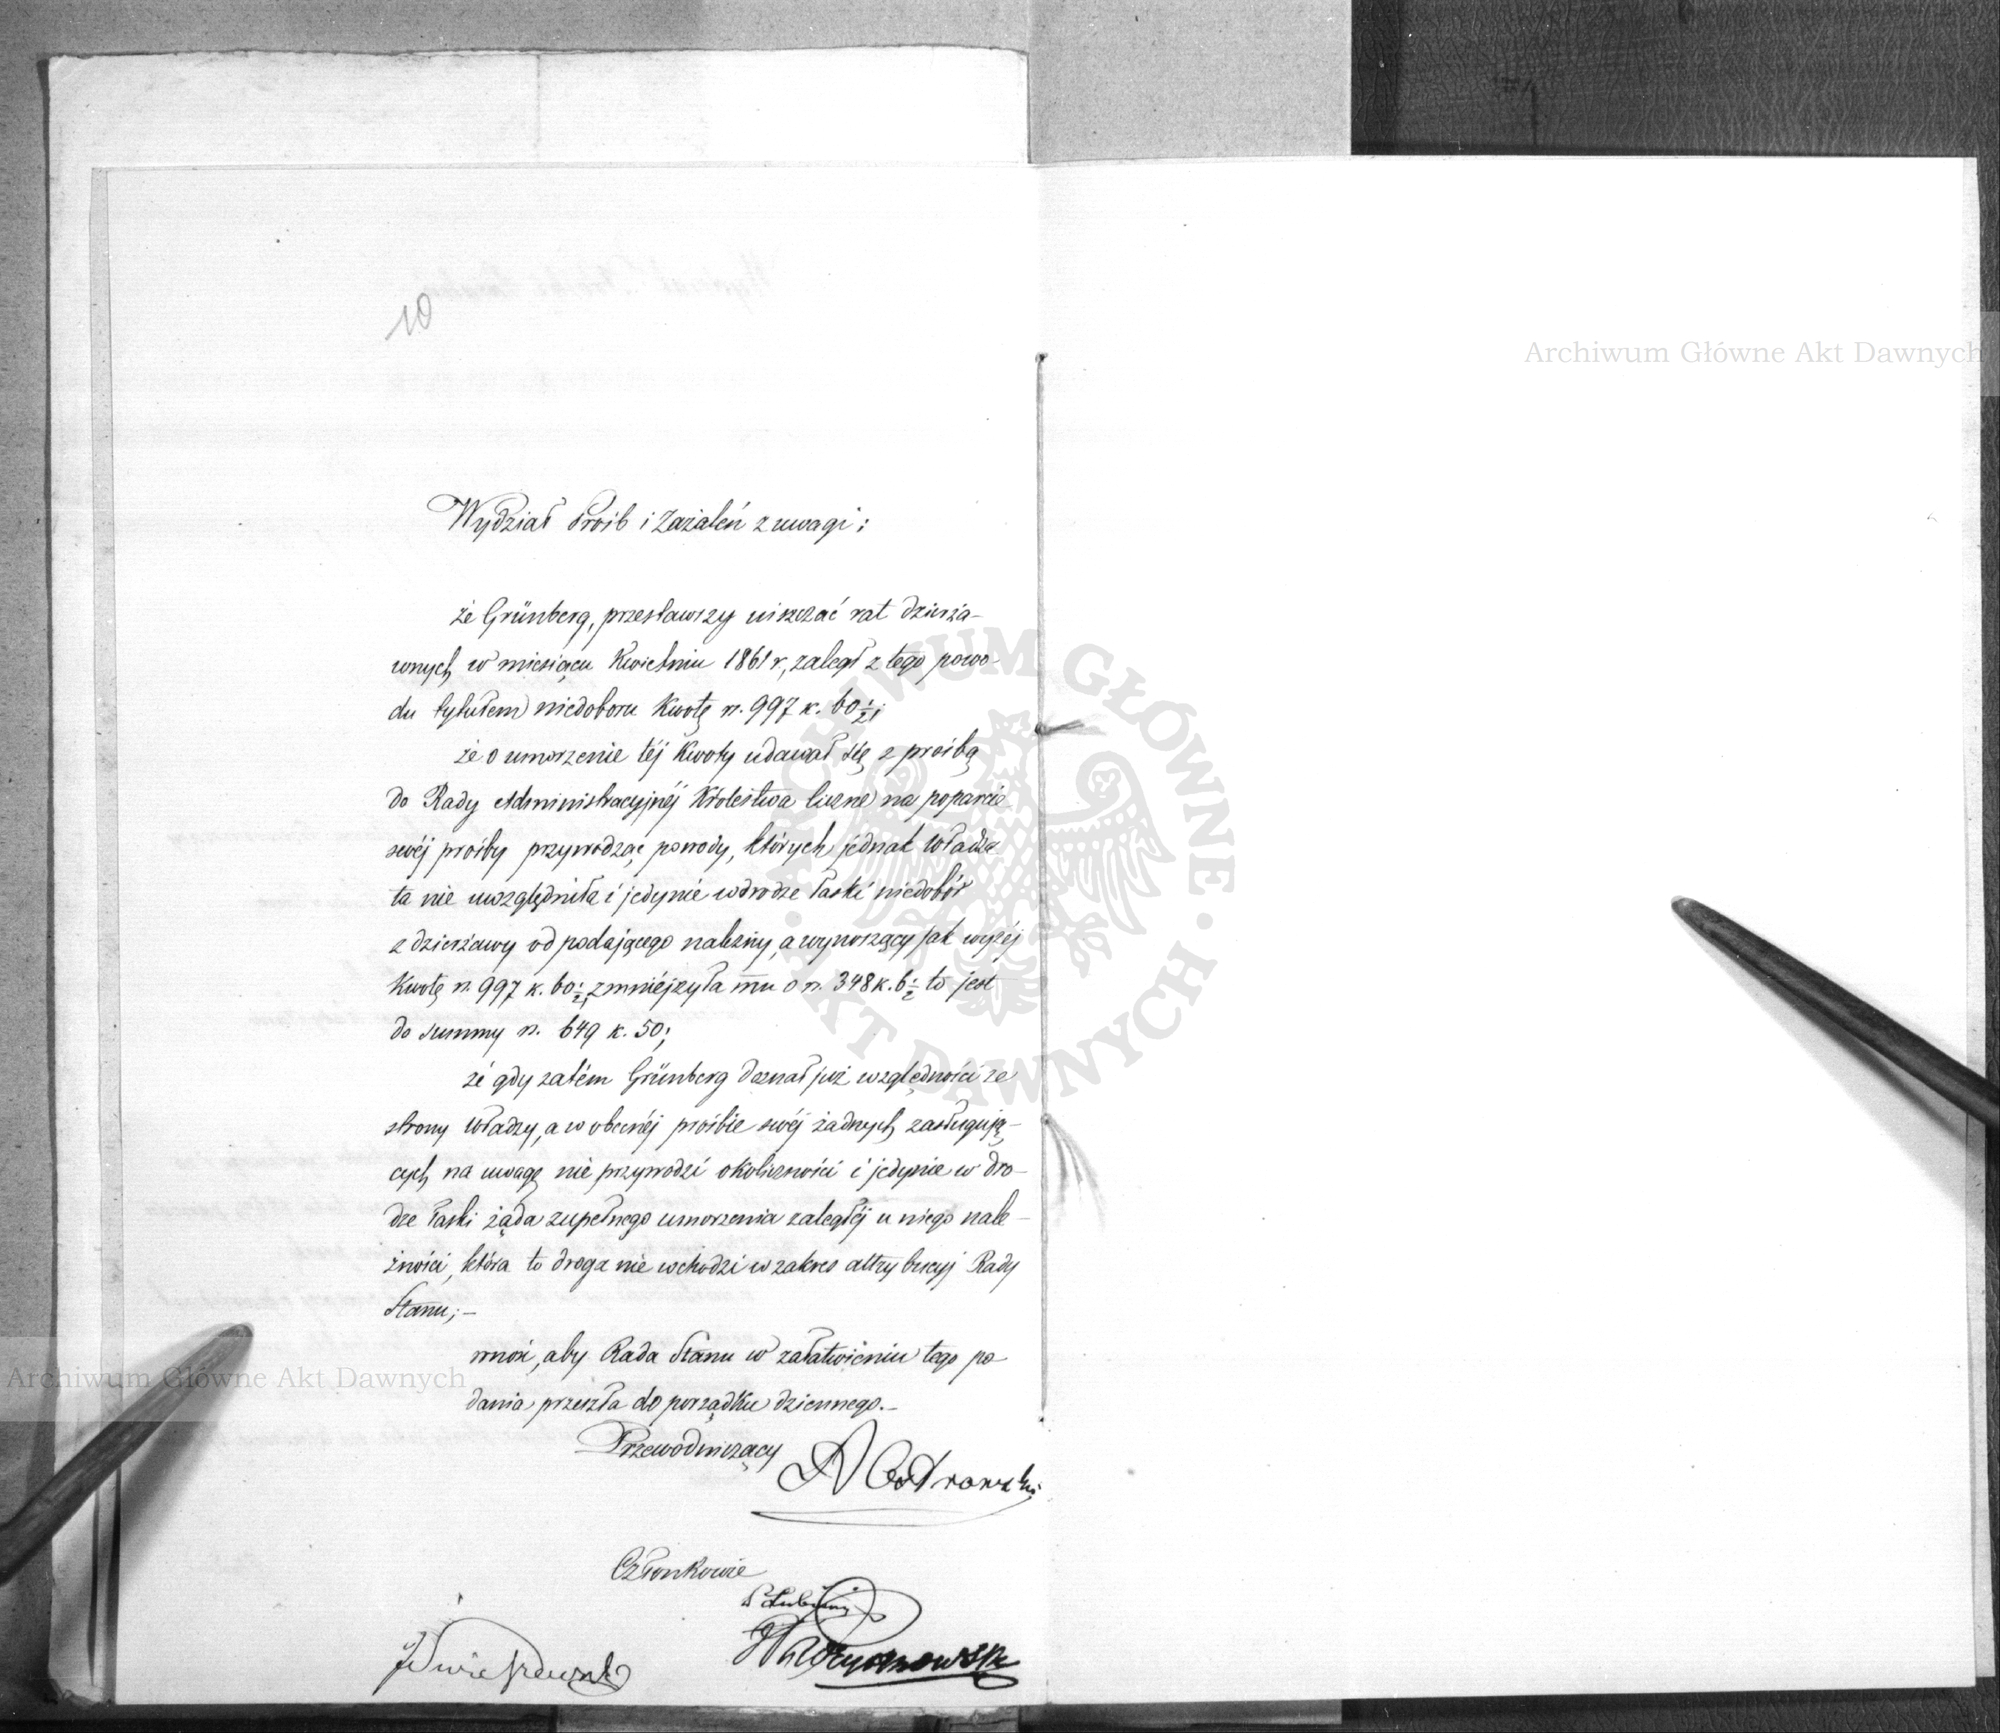 10
Wydział Próśb i Zażaleń z uwagi:
że Grünberg, przestawszy uiszczać rat dzierża-
wnych w miesiącu Kwietniu 1861 r, zaległ z tego powo-
du tytułem niedoboru Kwotę rs. 997 k. 60½;
że o umorzenie téj Kwoty udawał się z prośbą
do Rady Administracyjnéj Królestwa liczne na poparcie
swéj prośby przywodząc powody, których jednak Władza
ta nie uwzględniła i jedynie w drodze łaski niedobór
z dzierżawy od podającego należny, a wynoszący jak wyżéj
Kwotę rs. 997 k. 60½, zmniéjszyła mu o rs. 348 k. 6½ to jest
do summy rs. 649 k. 50;
że gdy zatém Grünberg doznał już względności ze
strony Władzy, a w obecnéj prośbie swéj żadnych zasługują-
cych na uwagę nie przywodzi okoliczności i jedynie w dro-
dze łaski żąda zupełnego umorzenia zaległéj u niego nale-
żności, która to droga nie wchodzi w zakres attrybucyj Rady
Stanu; -
wnosi, aby Rada Stanu w załatwieniu tego po
dania przeszła do porządku dziennego. -
Przewodniczący
A Ostrowski
Członkowie
Archiwum Główne Akt Dawnych
Archiwum Główne Akt Dawnych
ARCHIWUM GŁÓWNE · AKT DAWNYCH ·